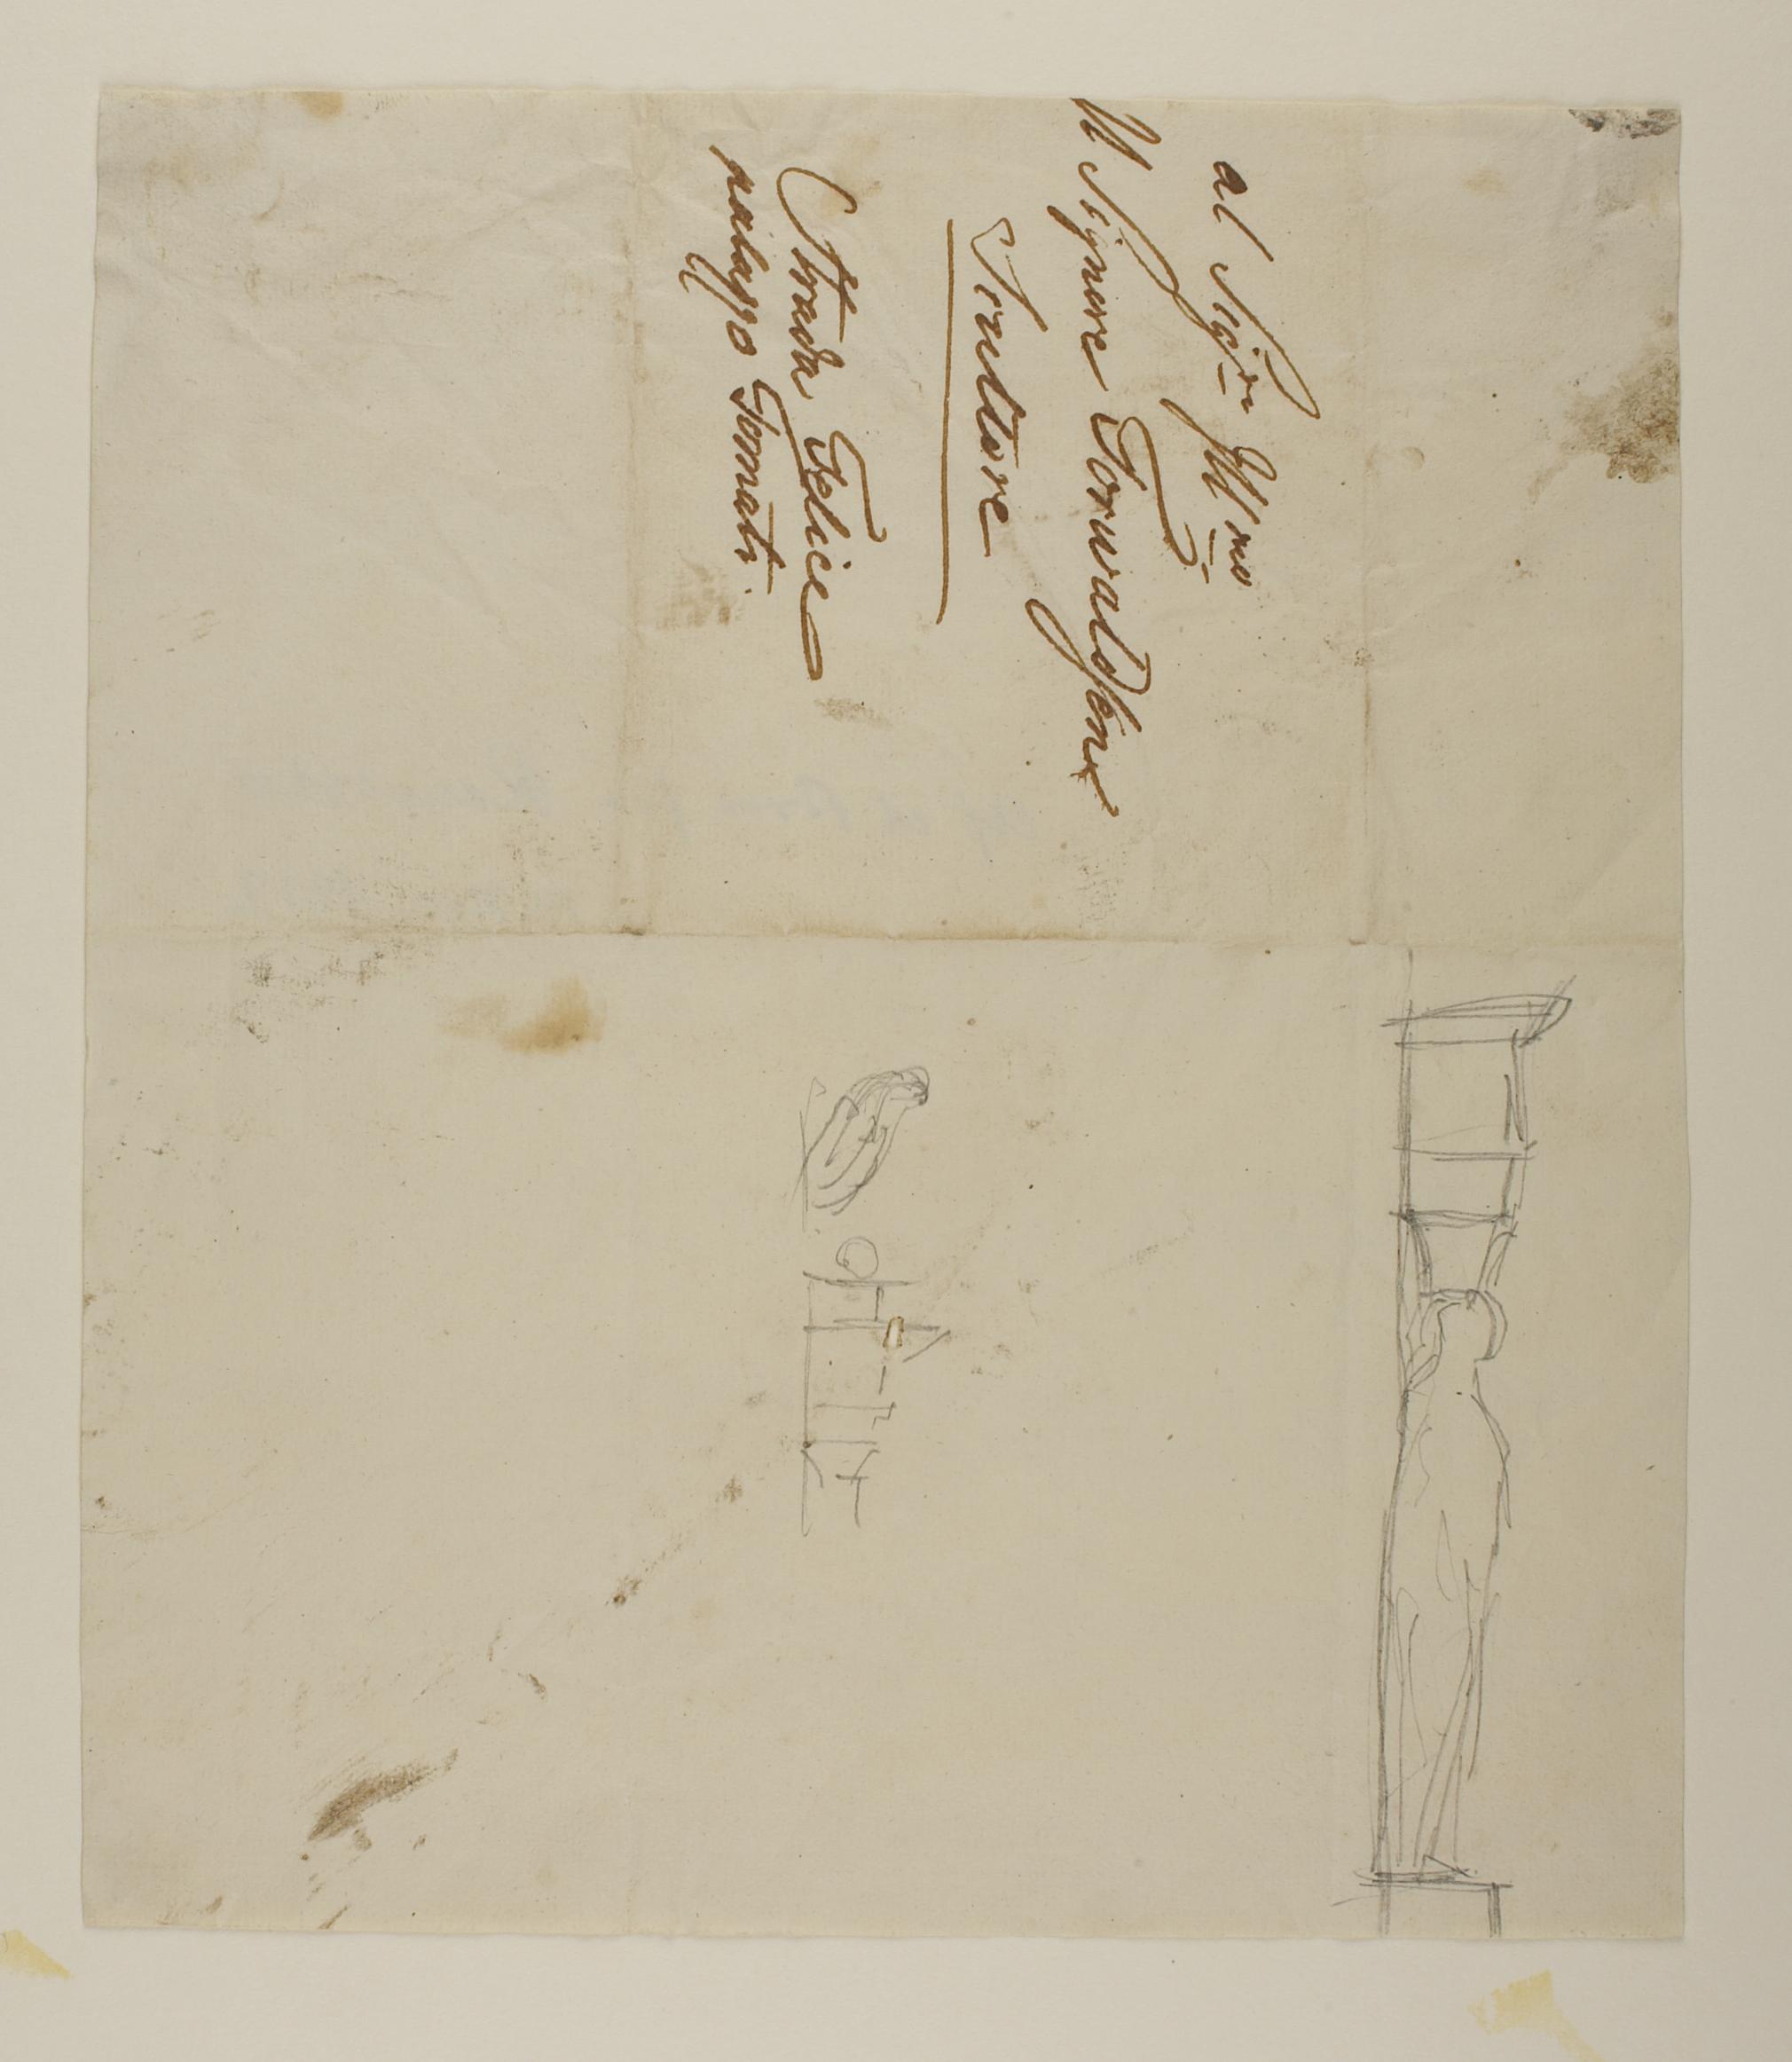 al Sig:re Ill:mo
Il Signore Torwaldsen
Scultore
Strada Felice
palazzo Tomati.